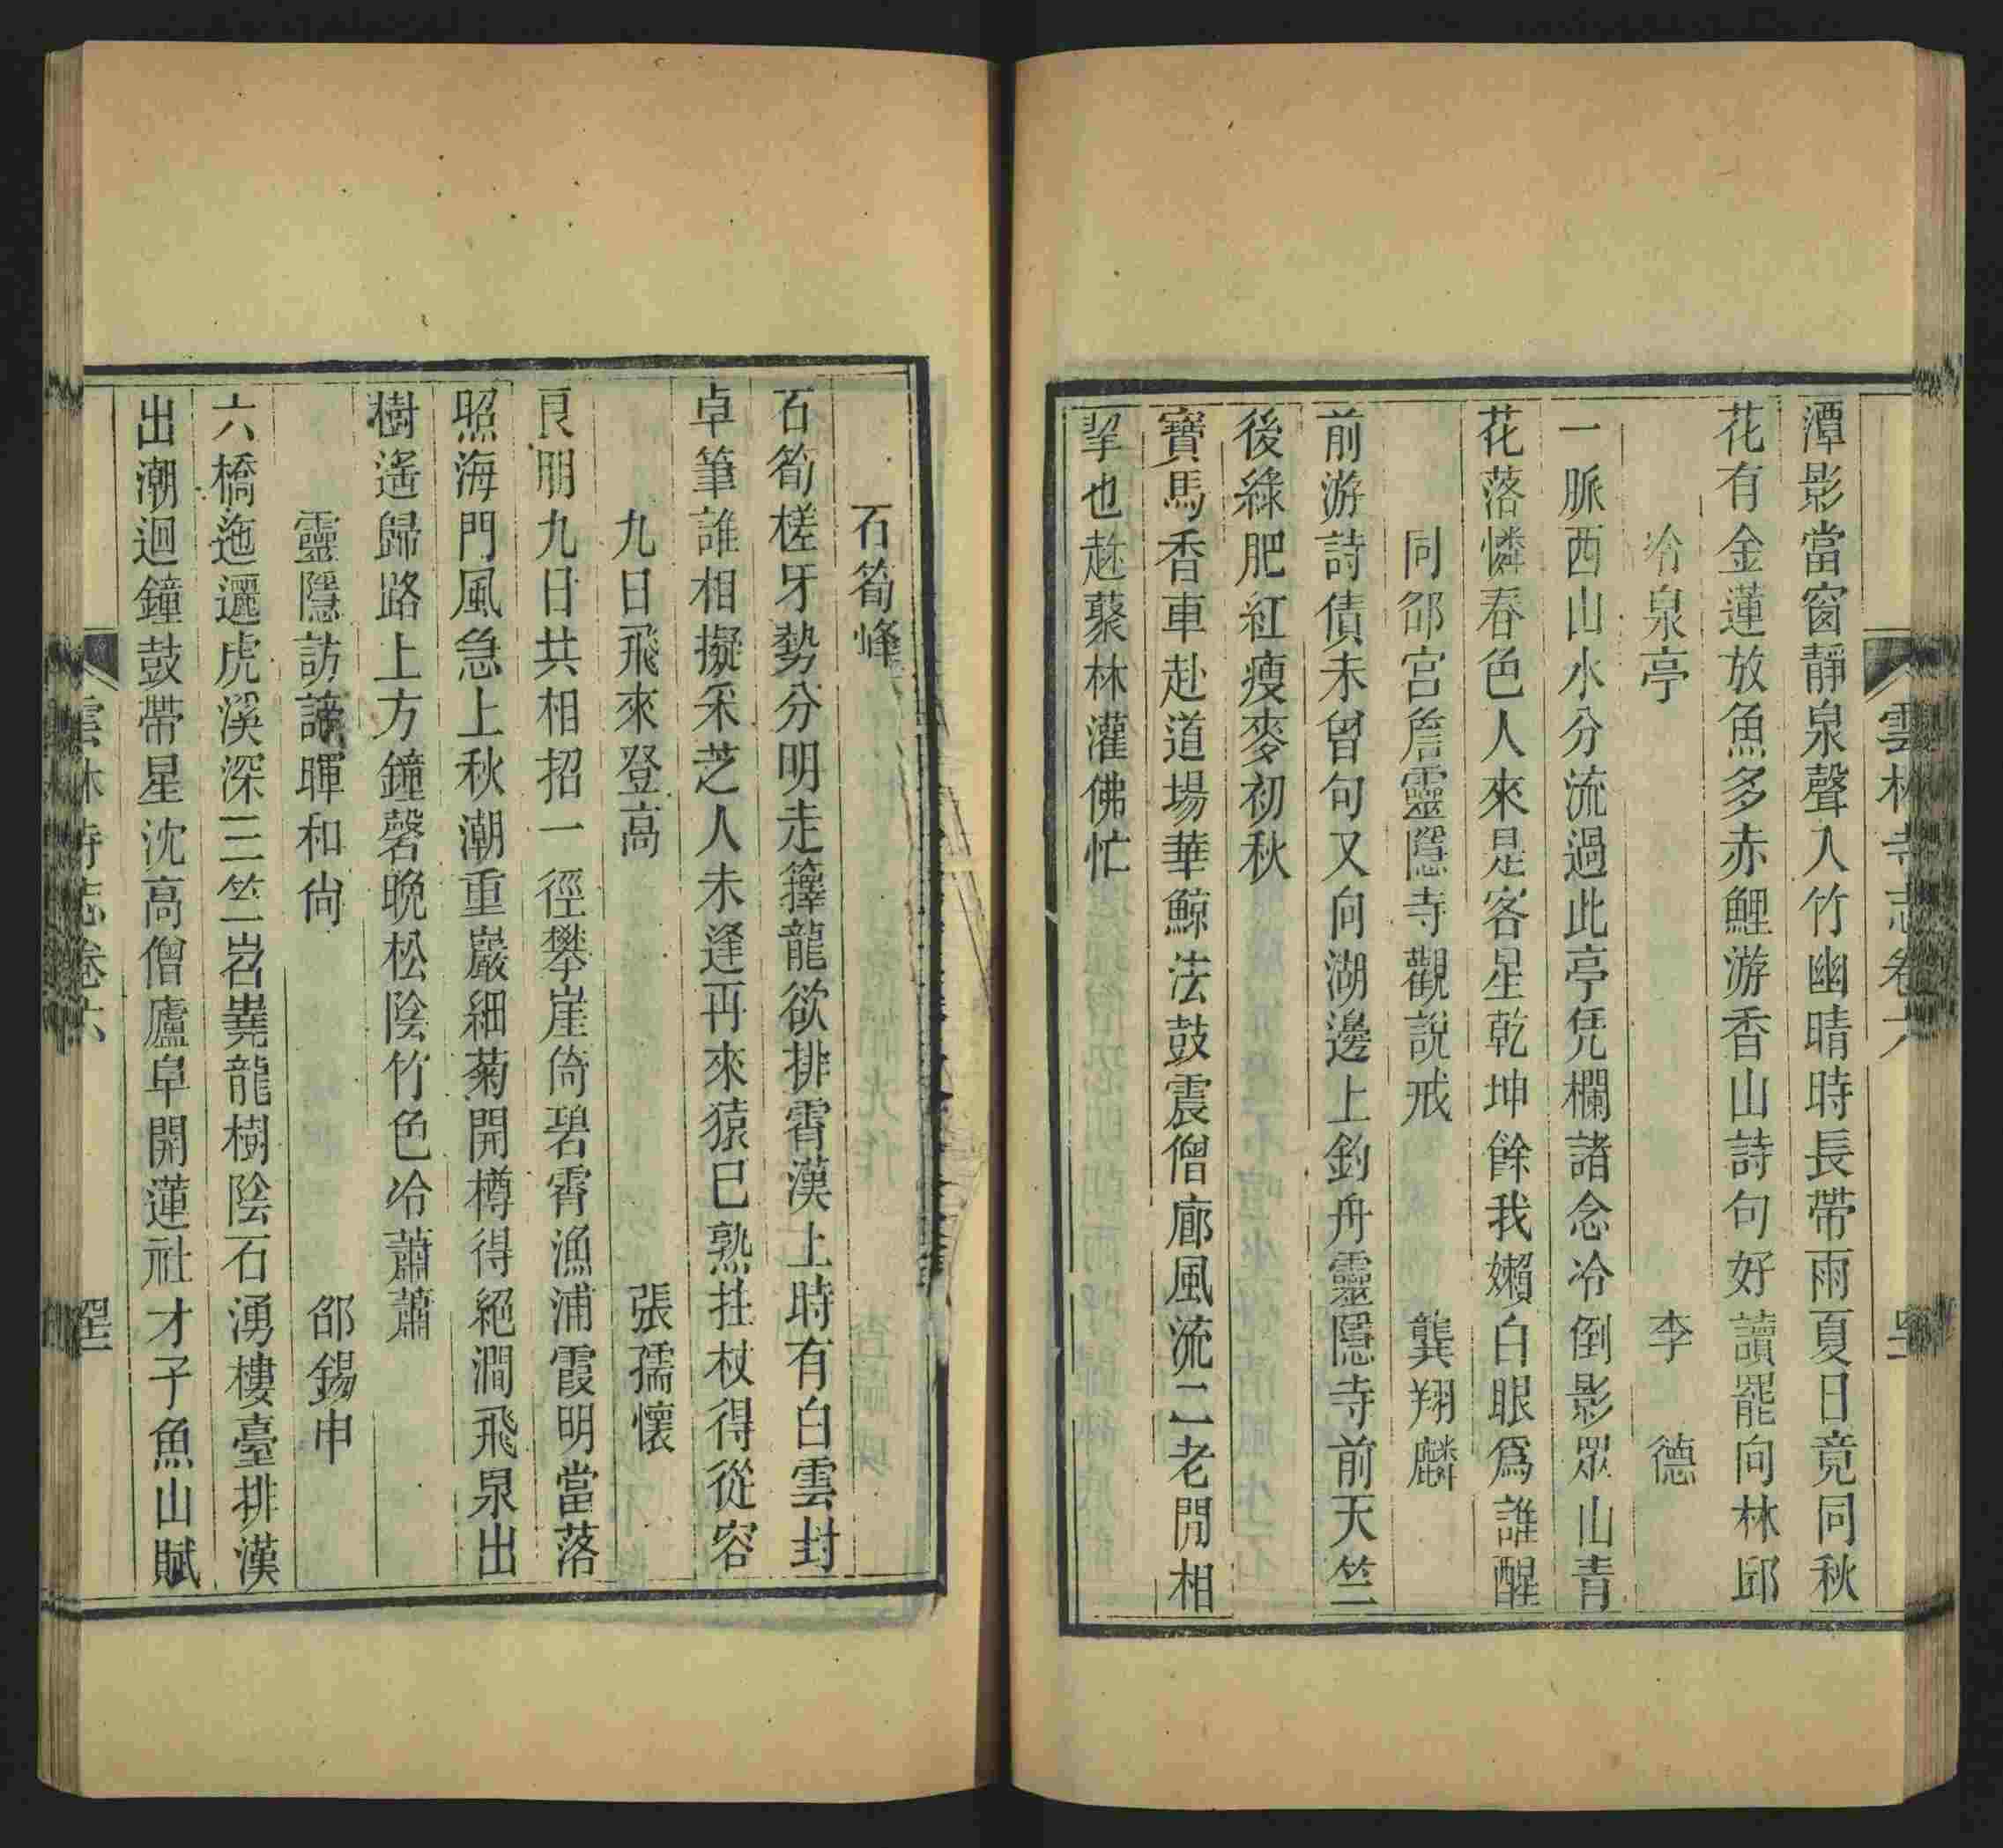 雲林寺志卷六
潭影當窗靜泉聲入竹幽晴時長帶雨夏日竟同秋
花有金蓮放魚多赤鯉游香山詩句好讀罷向林邱
冷泉亭 李德
一脈西山水分流過此亭凭欄諸念冷倒影眾山青
花落憐春色人來是客星乾坤餘我嬾白眼爲誰醒
同邵宮詹靈隱寺觀說戒 龔翔麟
前游詩債未曾句又向湖邊上釣舟靈隱寺前天竺
後綠肥紅瘦麥初秋
寶馬香車赴道場華鯨法鼓震僧廊風流二老閒相
挈也趂藂林灌佛忙
石筍峰
石筍槎牙勢分明走籜龍欲排霄漢上時有白雲封
卓筆誰相擬采芝人未逢再來猿已熟拄杖得從容
九日飛來登高 張孺懷
良朋九日共相招一徑攀崖倚碧霄漁浦霞明當落
照海門風急上秋潮重巖細菊開樽得絕澗飛泉出
樹遙歸路上方鐘磬晚松陰竹色冷蕭蕭
靈隱訪諦暉和尙 邵錫申
六橋迤邐虎溪深三竺岧嶤龍樹陰石湧樓臺排漢
出潮迴鐘鼓帶星沈高僧廬阜開蓮社才子魚山賦
雲林寺志卷六